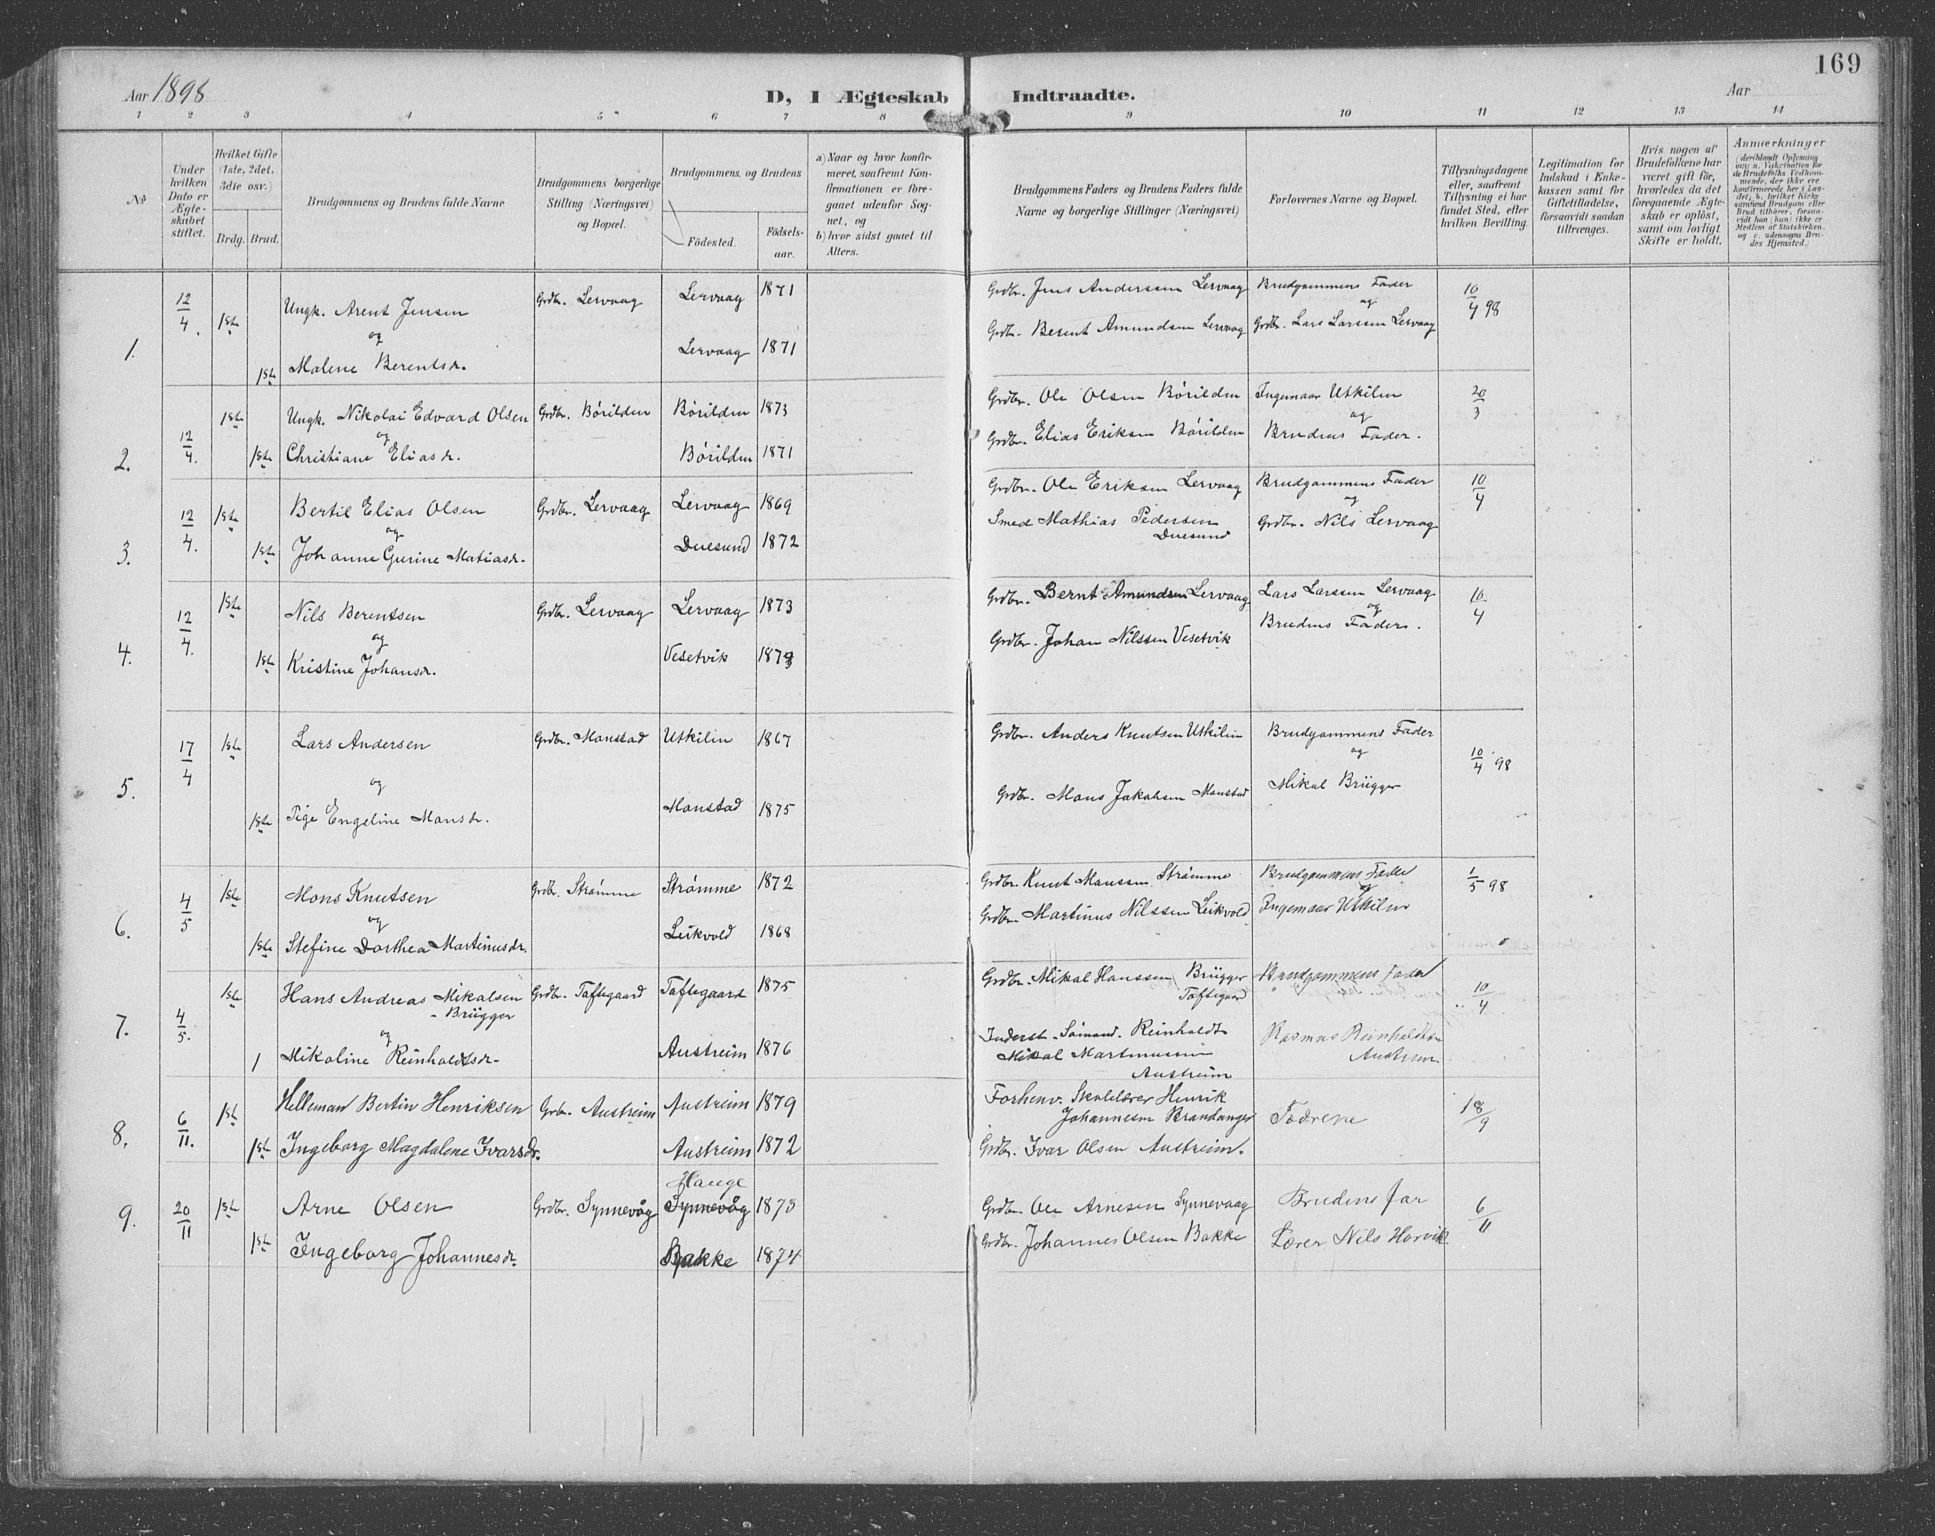 169
Aar 1898
D, I Ægteskab Indtraadte.
Aar
1 2 3 4 5 6 7 8 9 10 11 12 13 14
No
Under hvilken Dato er Ægteskabet stiftet.
Hvilket Gifte (1ste, 2det, 3die osv.)
Brdg. Brud.
Brudgommens og Brudens fulde Navne
Brudgommens borgerlige Stilling (Næringsvei) og Bopæl.
Brudgommens, og Brudens
Födested. Födselsaar.
a) Naar og hvor konfirmeret, saafremt Konfirmationen er foregaaet udenfor Sognet, og
b) hvor sidst gaaet til Alters.
Brudgommens Faders og Brudens Faders fulde Navne og borgerlige Stillinger (Næringsvei)
Forlovernes Navne og Bopæl.
Tillysningsdagene eller, saafremt Tillysning ei har fundet Sted, efter hvilken Bevilling.
Legitimation for Indskud i Enkekassen samt for Giftetilladelse, forsaavidt saadan tiltrænges.
Hvis nogen af Brudefolkene har været gift för, hvorledes da det foregaaende Ægteskab er oplöst, samt om lovligt Skifte er holdt.
Anmærkninger
1. 12/4 1ste Ungk. Arent Jensen Grdbr. Lervaag Lervaag 1871 Grdbr. Jens Anderssen Lervaag Brudgommens Fader 10/4 98
og og
1ste Malene Berentsdr. Lervaag 1871 Grdbr. Berent Amundsen Lervaag Grdbr. Lars Larssen Lervaag
2. 12/4 1ste Ungk. Nikolai Edvard Olsen Grdbr. Börilden Börilden 1873 Grdbr. Ole Olsen Börilden Ingemaar Utkilen 20/3
og og
1ste Christiane Eliasdr. Börilden 1871 Grdbr. Elias Eriksen Börilden Brudens Fader.
3. 12/4 1ste Bertil Elias Olsen Grdbr. Lervaag Lervaag 1869 Grdbr. Ole Eriksen Lervaag Brudgommens Fader 10/4
og og
1ste Johanne Gurine Matiasdr. Duesund 1872 Smed Mathias Pedersen Duesund Grdbr. Nils Lervaag
4. 12/4 1ste Nils Berentsen Grdbr. Lervaag Lervaag 1873 Grdbr. Bernt Amundsen Lervaag Lars Larssen Lervaag 10/4
og og
1ste Kristine Johansdr. Vesetvik 1873 Grdbr. Johan Nilssen Vesetvik Brudens Fader.
5. 17/4 1ste Lars Andersen Grdbr. Monstad Utkilen 1867 Grdbr. Anders Knutsen Utkilen Brudgommens Fader 10/4 98
og og
1ste Pige Engeline Monsdr. Monstad 1875 Grdbr. Mons Jakobsen Monstad Mikal Brügger
6. 4/5 1ste Mons Knutsen Grdbr. Strömme Strömme 1872 Grdbr. Knut Monssen Strömme Brudgommens Fader 1/5 98
og og
1ste Stefine Dorthea Martinusdr. Leikvold 1868 Grdbr. Martinus Nilssen Leikvold Ingemaar Utkilen
7. 4/5 1ste Hans Andreas Mikalsen Brügger Grdbr. Taftegaard Taftegaard 1875 Grdbr. Mikal Hanssen Brügger Taftegaard Brudgommens Fader 10/4
og
1 Mikoline Reinholdtsdr. Austreim 1876 Inderst Reinholdt Mikal Martinussen Austreim Rasmus Reinholdtsen Austreim
8. 6/11. 1ste Helleman Bertin Henriksen Grbr. Austreim Austreim 1879 Forhenv. Skolelærer Henrik Johannesen Brandanger Fædrene 18/9
1ste Ingeborg Magdalene Ivarsdr. Austreim 1872 Grdbr. Ivar Olsen Austreim.
9. 20/11 1ste Arne Olsen Grdbr. Synnevåg Hauge Synnevåg 1873 Grdbr. Ole Arnesen Synnevaag Brudens far 6/11
1ste Ingeborg Johannesdr. Bakke 1874 Grdbr. Johannes Olsen Bakke Lærer Nils Horvik